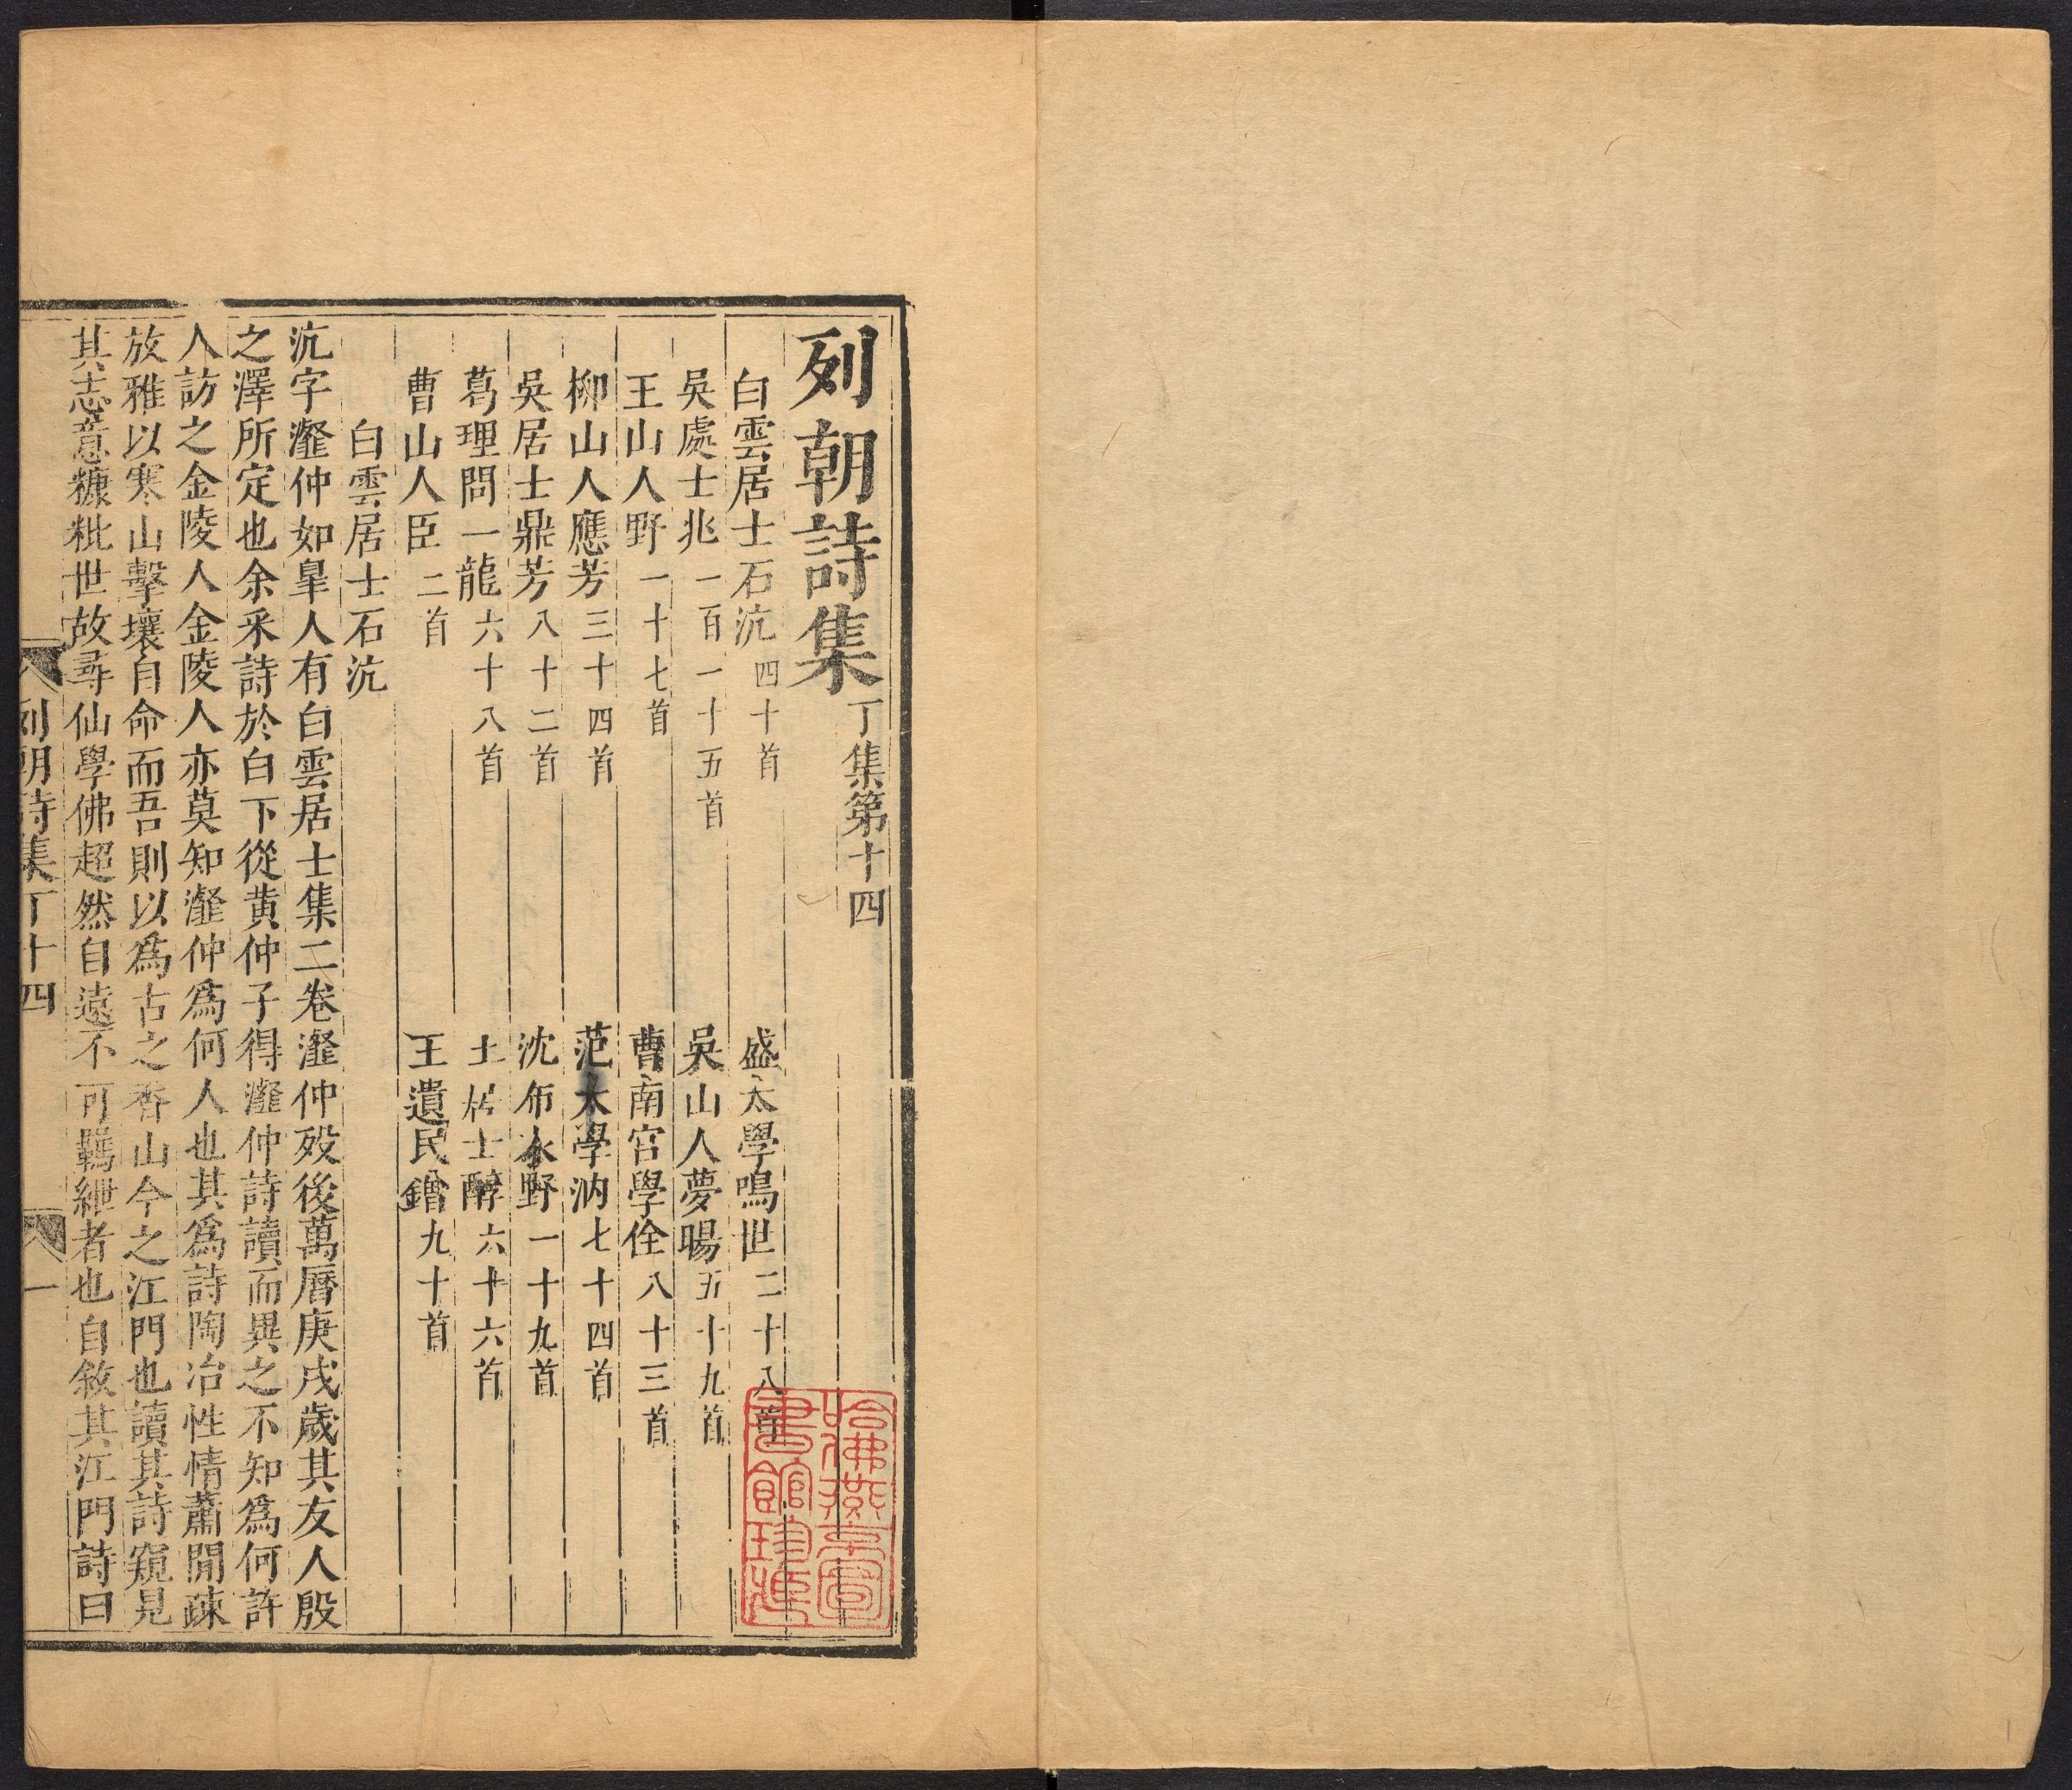 列朝詩集丁集第十四
白雲居士石沆四十首
盛太學鳴世二十八首
吳處士兆一百一十五首
吳山人夢暘五十九首
王山人野一十七首
曹南宫學佺八十三首
柳山人應芳三十四首
范太學汭七十四首
吳居士鼎芳八十二首
沈布衣野一十九首
葛理問一龍六十八首
居士醇六十六首
曹山人臣二首
王遺民鏳九十首
白雲居士石沆
沆字瀣仲如臯人有白雲居士集二卷瀣仲歿後萬曆庚戌歲其友人殷
之澤所定也余采詩於白下從黄仲子得瀣仲詩讀而異之不知爲何許
人訪之金陵人金陵人亦莫知瀣仲爲何人也其爲詩陶冶性情蕭閒疎
放雅以寒山擊壤自命而吾則以爲古之香山今之江門也讀其詩窺見
其志意糠粃世故尋仙學佛超然自遠不可羈紲者也自敘其江門詩曰
列朝詩集丁十四
一
哈佛燕京圖書館珍藏